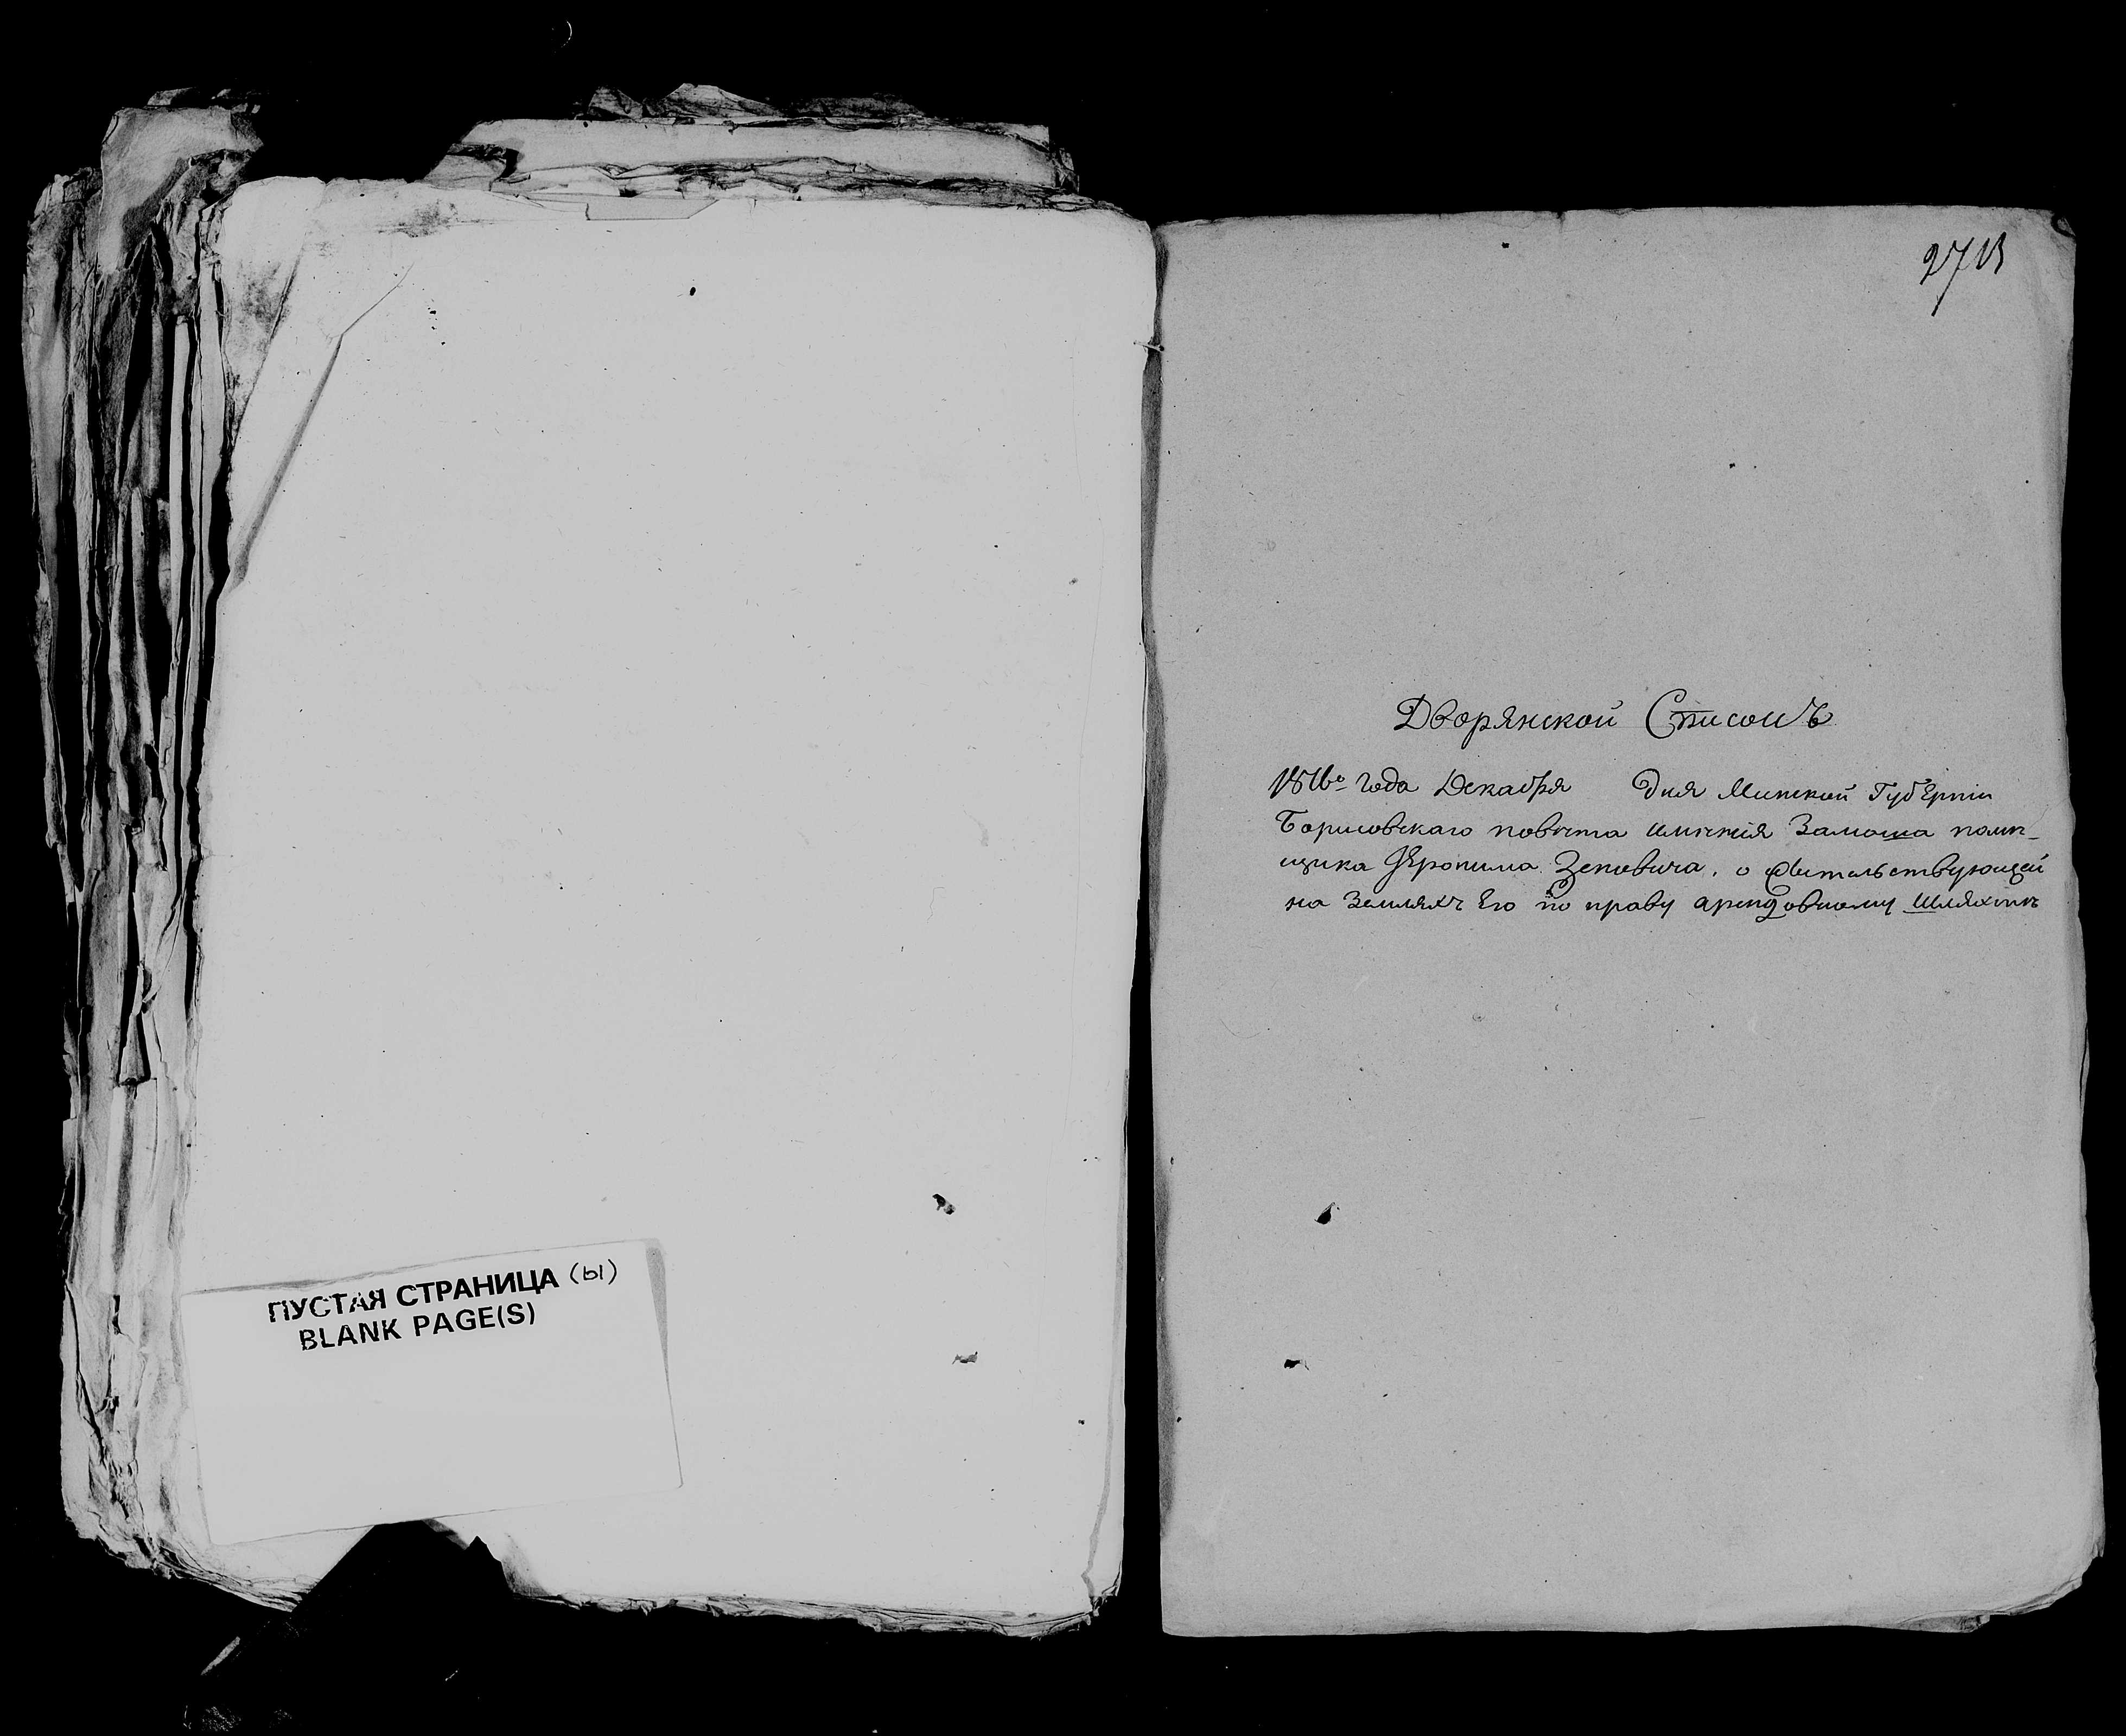 ПУСТАЯ СТРАНИЦА (ы)
BLANK PAGE(S)
Дворянской Списокъ
1816го года Декабря дня Минской Губерніи
Борисовскаго повѣта имѣнія Замоша помѣ-
щика Іеронима Зеновича, о жительствующей
на Земляхъ Его по праву арендовному Шляхтѣ